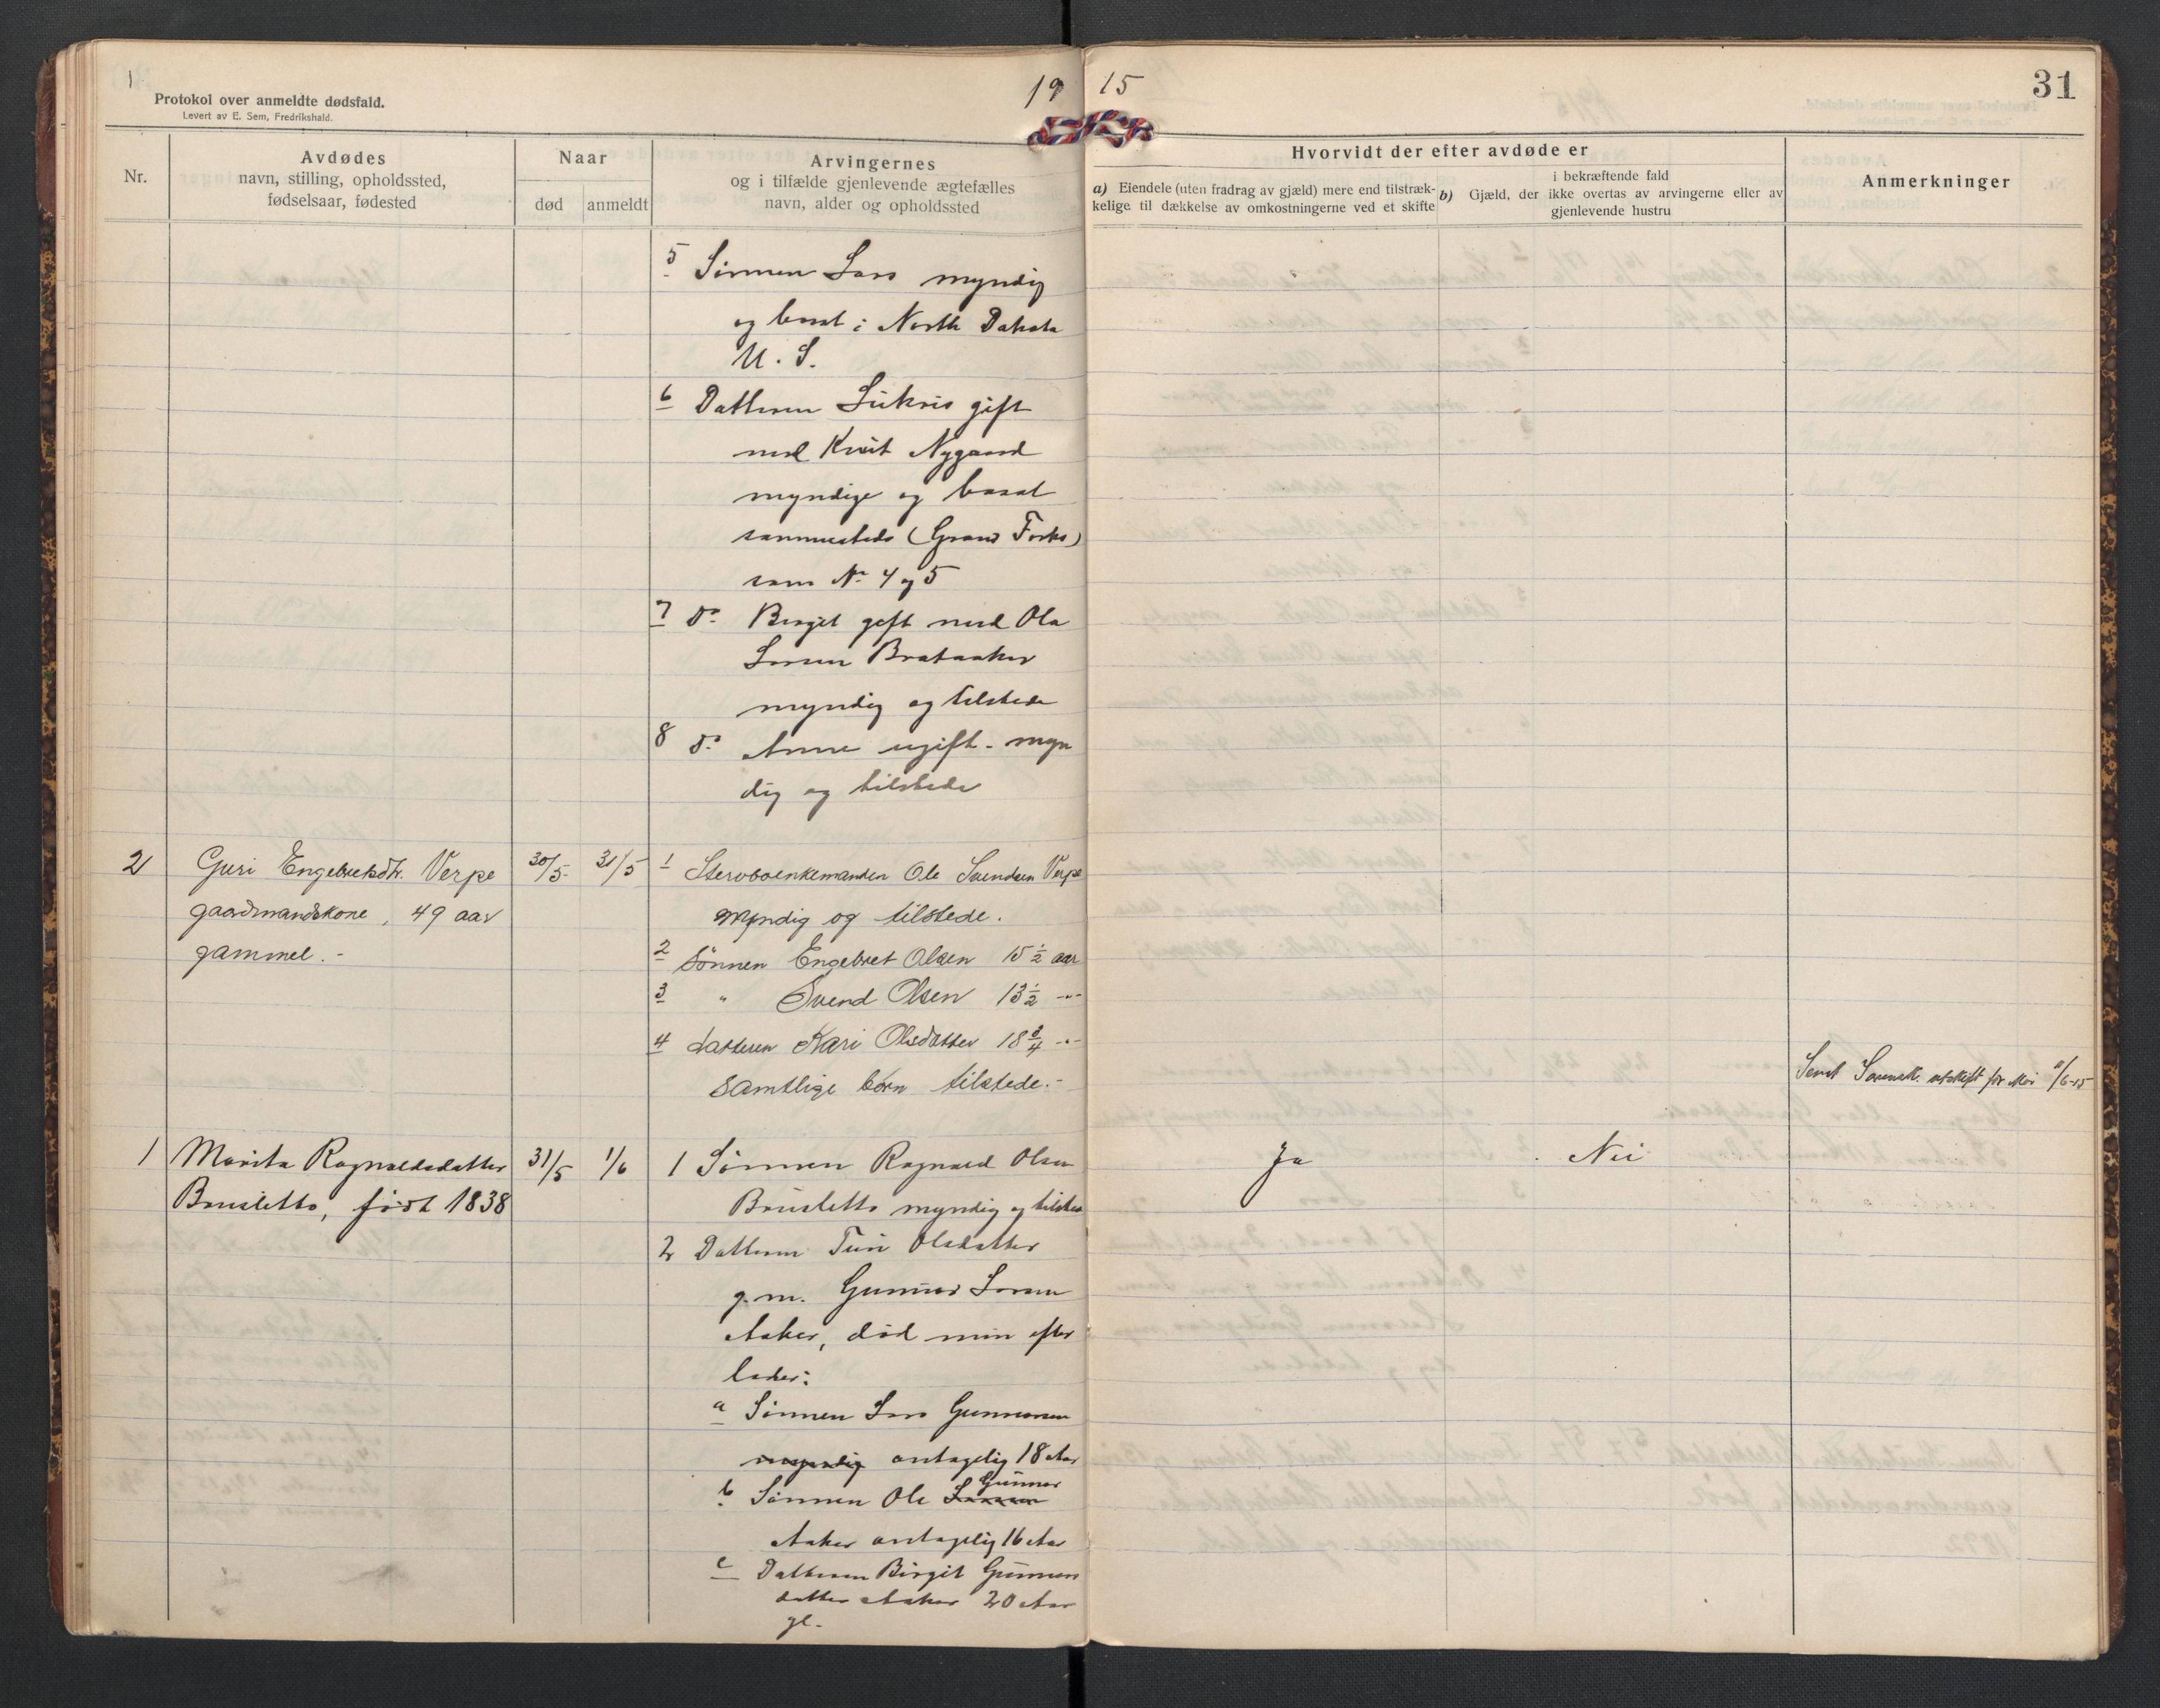 1
19 15
31
Protokol over anmeldte dødsfald.
Levert av E. Sem, Fredrikshald.
Nr.
Avdødes
navn, stilling, opholdssted,
fødselsaar, fødested
Naar
død
anmeldt
Arvingernes
og i tilfælde gjenlevende ægtefælles
navn, alder og opholdssted
Hvorvidt der efter avdøde er
a) Eiendele (uten fradrag av gjæld) mere end tilstræk-
kelige til dækkelse av omkostningerne ved et skifte
i bekræftende fald
b) Gjæld, der ikke overtas av arvingerne eller av
gjenlevende hustru
Anmerkninger
5 Sønnen Lars myndig
og bosat i North Dakota
U. S.
6 Datteren gift
med Knut Nygaard
myndige og bosat
sammesteds (Grand Forks)
som No 4 og 5
7 Do Birgit gift med Ola
Larsen Brataaker
myndig og tilstede
8 Do Anne ugift - myn
dig og tilstede
2 Guri Engebretsdtr. Verpe 30/5 31/5 1 Stervboenkemanden Ole Svendsen Verpe
gaardmandskone, 49 aar myndig og tilstede.
gammel.- 2 Sønnen Engebret Olsen 15½ aar
3 " Svend Olsen 13½ -"-
4 datteren Kari Olsdatter 18¾ -"-
samtlige børn tilstede.-
Sendt Sorensk. utskrift for Mai /6-15
1 Marita Ragnvaldsdatter 31/5 1/6 1 Sønnen Ragnvald Olsen Ja Nei
Brusletto, født 1838 Brusletto myndig og tilstede
2 Datteren Turi Olsdatter
g.m. Gunnar Larsen
Aaker, død men efter
lader:
a Sønnen Lars Gunnarsen
myndig antagelig 18 Aar
b Sønnen Ole Larsen Gunnar
Aaker antagelig 16 Aar
c Datteren Birgit Gunnars
datter Aaker 20 Aar
gl.